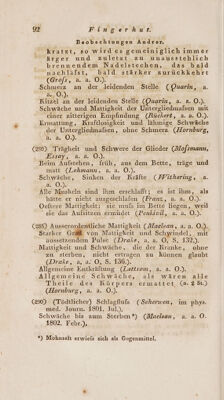 92 Fingerhut.
Beobachtungen Andrer.
kratzt, so wird es gemeiniglich immer
ärger und zuletzt zu unausstehlich
brennendem Nadelstechen, das bald
nachläſst, bald stärker zurückkehrt
(Groſs, a. a. O.).
Schmerz an der leidenden Stelle (Quarin, a.
a. O.).
Ritzel an der leidenden Stelle (Quarin, a. a. O.).
Schwäche und Mattigkeit der Untergliedmaſsen mit
einer zitterigen Empfindung (Büchert, a. a. O.).
Ermattung, Kraftlosigkeit und lähmige Schwäche
der Untergliedmaſsen, ohne Schmerz (Hornburg,
a. a. O.).
(280) Trägheit und Schwere der Glieder (Moſsmann,
Essay, a. a. O.).
Beim Aufstehen, früh, aus dem Bette, träge und
matt (Lehmann, a. a. O.).
Schwäche, Sinken der Kräfte (Withering, a.
a. O.).
Alle Muskeln sind ihm erschlafft; es ist ihm, als
hätte er nicht ausgeschlafen (Franz, a. a. O.).
Oeftere Mattigkeit: sie muſs im Bette liegen, weil
sie das Aufsitzen ermüdet (Penkivil, a. a. O.).
(285) Ausserordentliche Mattigkeit (Maclean, a. a. O.).
Starker Grad von Mattigkeit und Schwindel, mit
aussetzendem Pulse (Drake, a. a. O. S. 132.).
Mattigkeit und Schwäche, die der Kranke, ohne
zu sterben, nicht ertragen zu können glaubt
(Drake, a. a. O. S. 136.).
Allgemeine Entkräftung (Lettsom, a. a. O.).
Allgemeine Schwäche, als wären alle
Theile des Körpers ermattet (n. 2 St.)
(Hornburg, a. a. O.).
(290) (Tödtlicher) Schlagfluſs (Scherwen, im phys.
med. Journ. 1801. Jul.).
Schwäche bis zum Sterben*) (Maclean, a. a. O.
1802. Febr.).
*) Mohnsaft erwies sich als Gegenmittel.